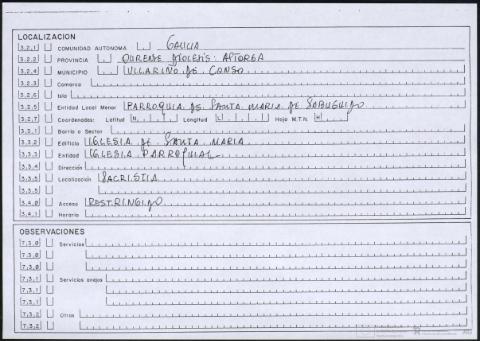 LOCALIZACION
3.2.1 COMUNIDAD AUTONOMA GALICIA
3.2.2 PROVINCIA OURENSE DIOCESIS: ASTORGA
3.2.4 MUNICIPIO VILLARIÑO DE CONSO
3.2.3 Comarca
3.2.6 Isla
3.2.5 Entidad Local Menor PARROQUIA DE SANTA MARIA DE
3.2.7 Coordenadas: Latitud N Longitud Hoja M.T.N. H
3.2.1 Barrio o Sector
3.3.2 Edificio IGLESIA DE SANTA MARIA
3.3.3 Entidad IGLESIA PARROQUIAL
3.3.4 Dirección
3.3.5 Localización SACRISTIA
3.3.5
3.4.2 Acceso RESTRINGIDO
3.4.1 Horario
OBSERVACIONES
7.3.0 Servicios
7.3.0
7.3.0
7.3.1 Servicios anejos
7.3.1
7.3.1
7.3.2 Otros
7.3.2